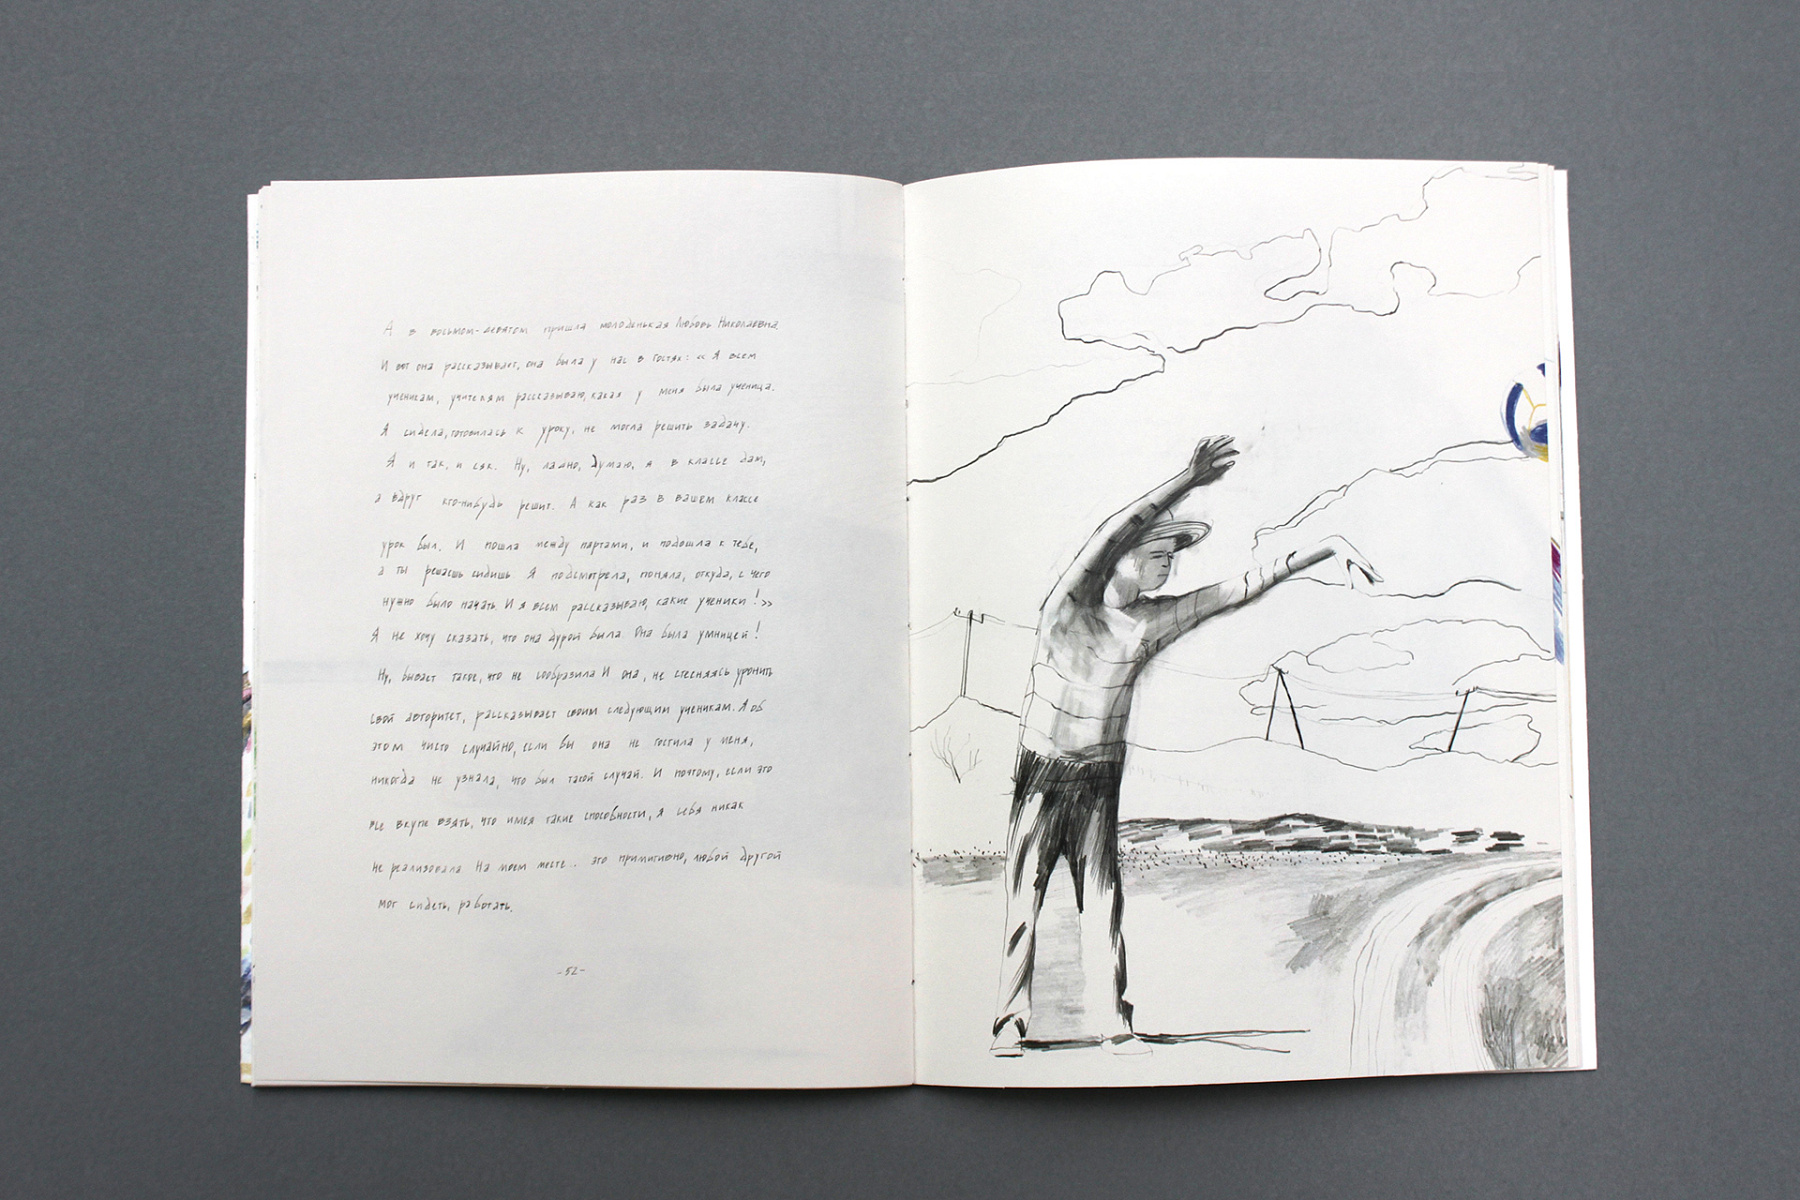 А в восьмом-девятом пришла молоденькая Любовь Николаевна.
И вот она рассказывает, она была у нас в гостях: «Я всем
ученикам, учителям рассказываю, какая у меня была ученица.
Я сидела, готовилась к уроку, не могла решить задачу.
Я и так, и сяк. Ну, ладно, думаю, я в классе дам,
а вдруг кто-нибудь решит. А как раз в вашем классе
урок был. И пошла между партами, и подошла к тебе,
а ты решаешь сидишь. Я подсмотрела, поняла, откуда, с чего
нужно было начать. И я всем рассказываю, какие ученики!»
Я не хочу сказать, что она дурой была. Она была умницей!
Ну, бывает такое, что не сообразила. И она, не стесняясь уронить
свой авторитет, рассказывает своим следующим ученикам. Я об
этом чисто случайно, если бы она не гостила у меня,
никогда не узнала, что был такой случай. И поэтому, если это
все вкупе взять, что имея такие способности, я себя никак
не реализовала. На моем месте... это примитивно, любой другой
мог сидеть, работать.
-52-